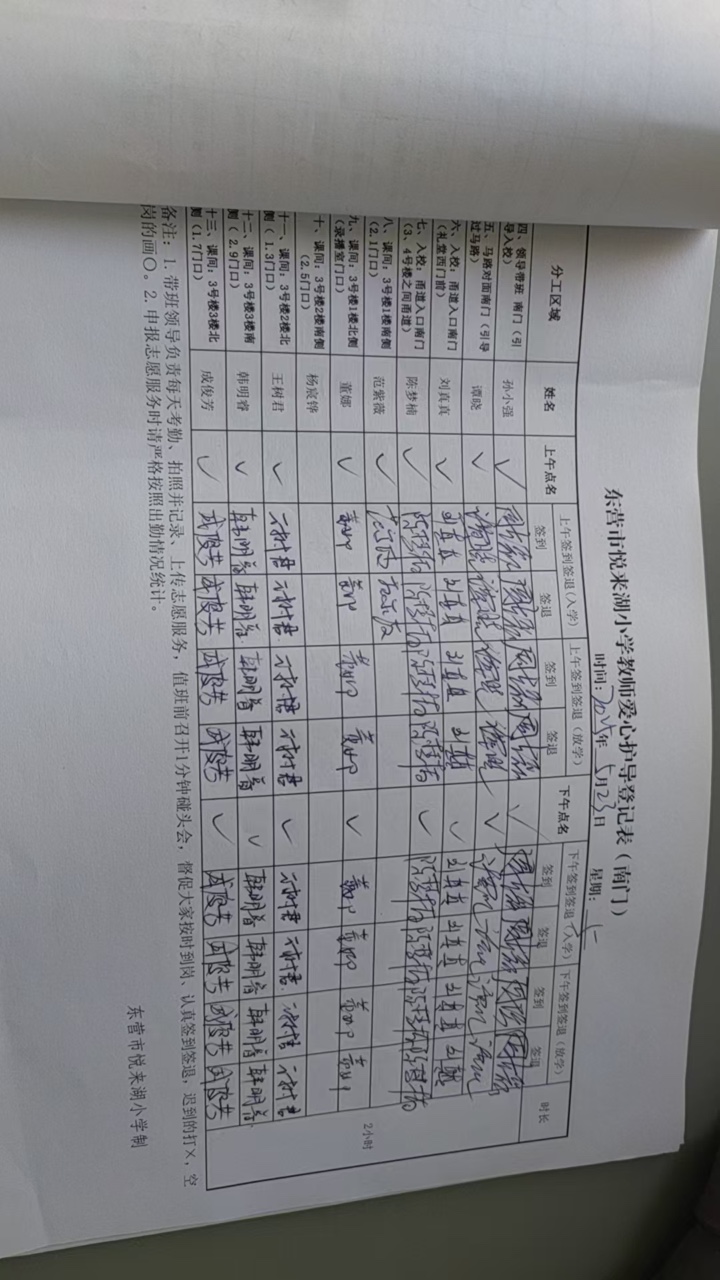 东营市悦来湖小学教师爱心护导登记表（南门）
时间：2025年 5月23日 星期：五
分工区域 姓名 上午点名 上午签到签退(入学) 上午签到签退（放学） 下午点名 下午签到签退（入学） 下午签到签退（放学） 时长
签到 签退 签到 签退 签到 签退 签到 签退
四、领导带班 南门（引导入校） 孙小强 ✓ ✓
五、马路对面南门（引导过马路） 谭晓 ✓ 谭晓 谭晓 谭晓 谭晓 ✓ 谭晓 谭晓 谭晓 谭晓
六、入校：甬道入口南门（礼堂西门前） 刘真真 ✓ 刘真真 刘真真 刘真真 刘真真 ✓ 刘真真 刘真真 刘真真 刘真真
七、入校：甬道入口南门（3、4号楼之间甬道） 陈梦楠 ✓ 陈梦楠 陈梦楠 陈梦楠 陈梦楠 ✓ 陈梦楠 陈梦楠 陈梦楠 陈梦楠
八、课间：3号楼1楼南侧（2.1门口） 范紫薇 ✓ 范紫薇 范紫薇
九、课间：3号楼1楼北侧（录播室门口） 董娜 ✓ 董娜 董娜 董娜 董娜 ✓ 董娜 董娜 董娜 董娜
十、课间：3号楼2楼南侧（2.5门口） 杨宸铧
十一、课间：3号楼2楼北侧（1.3门口） 王树君 ✓ 王树君 王树君 王树君 王树君 ✓ 王树君 王树君 王树君 王树君
十二、课间：3号楼3楼南侧（2.9门口） 韩明睿 ✓ 韩明睿 韩明睿 韩明睿 韩明睿 ✓ 韩明睿 韩明睿 韩明睿 韩明睿
十三、课间：3号楼3楼北侧（1.7门口） 成俊芳 ✓ 成俊芳 成俊芳 成俊芳 成俊芳 ✓ 成俊芳 成俊芳 成俊芳 成俊芳
2小时
备注：1. 带班领导负责每天考勤、拍照并记录、上传志愿服务，值班前召开1分钟碰头会，督促大家按时到岗、认真签到签退，迟到的打×，空
岗的画〇。2. 申报志愿服务时请严格按照出勤情况统计。
东营市悦来湖小学制